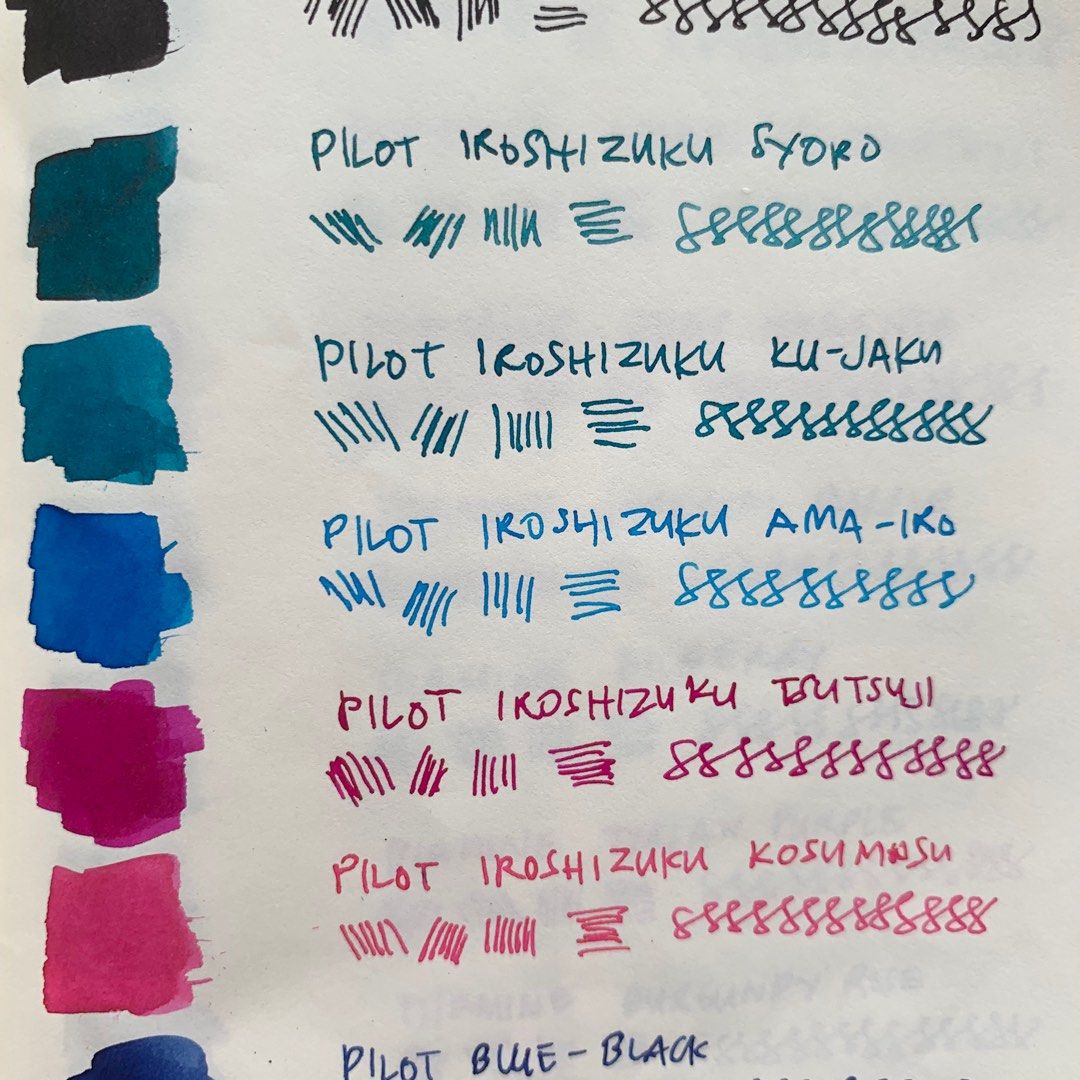 PILOT IROSHIZUKU SYORO
PILOT IROSHIZUKU KU-JAKU
PILOT IROSHIZUKU AMA-IRO
PILOT IROSHIZUKU TSUTSUJI
PILOT IROSHIZUKU KOSUMOSU
PILOT BLUE-BLACK